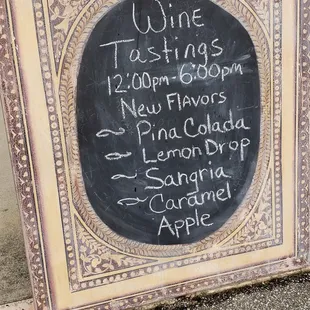 Wine
Tastings
12:00pm-6:00pm
New Flavors
~ Pina Colada
~ Lemon Drop
~ Sangria
~ Caramel
Apple